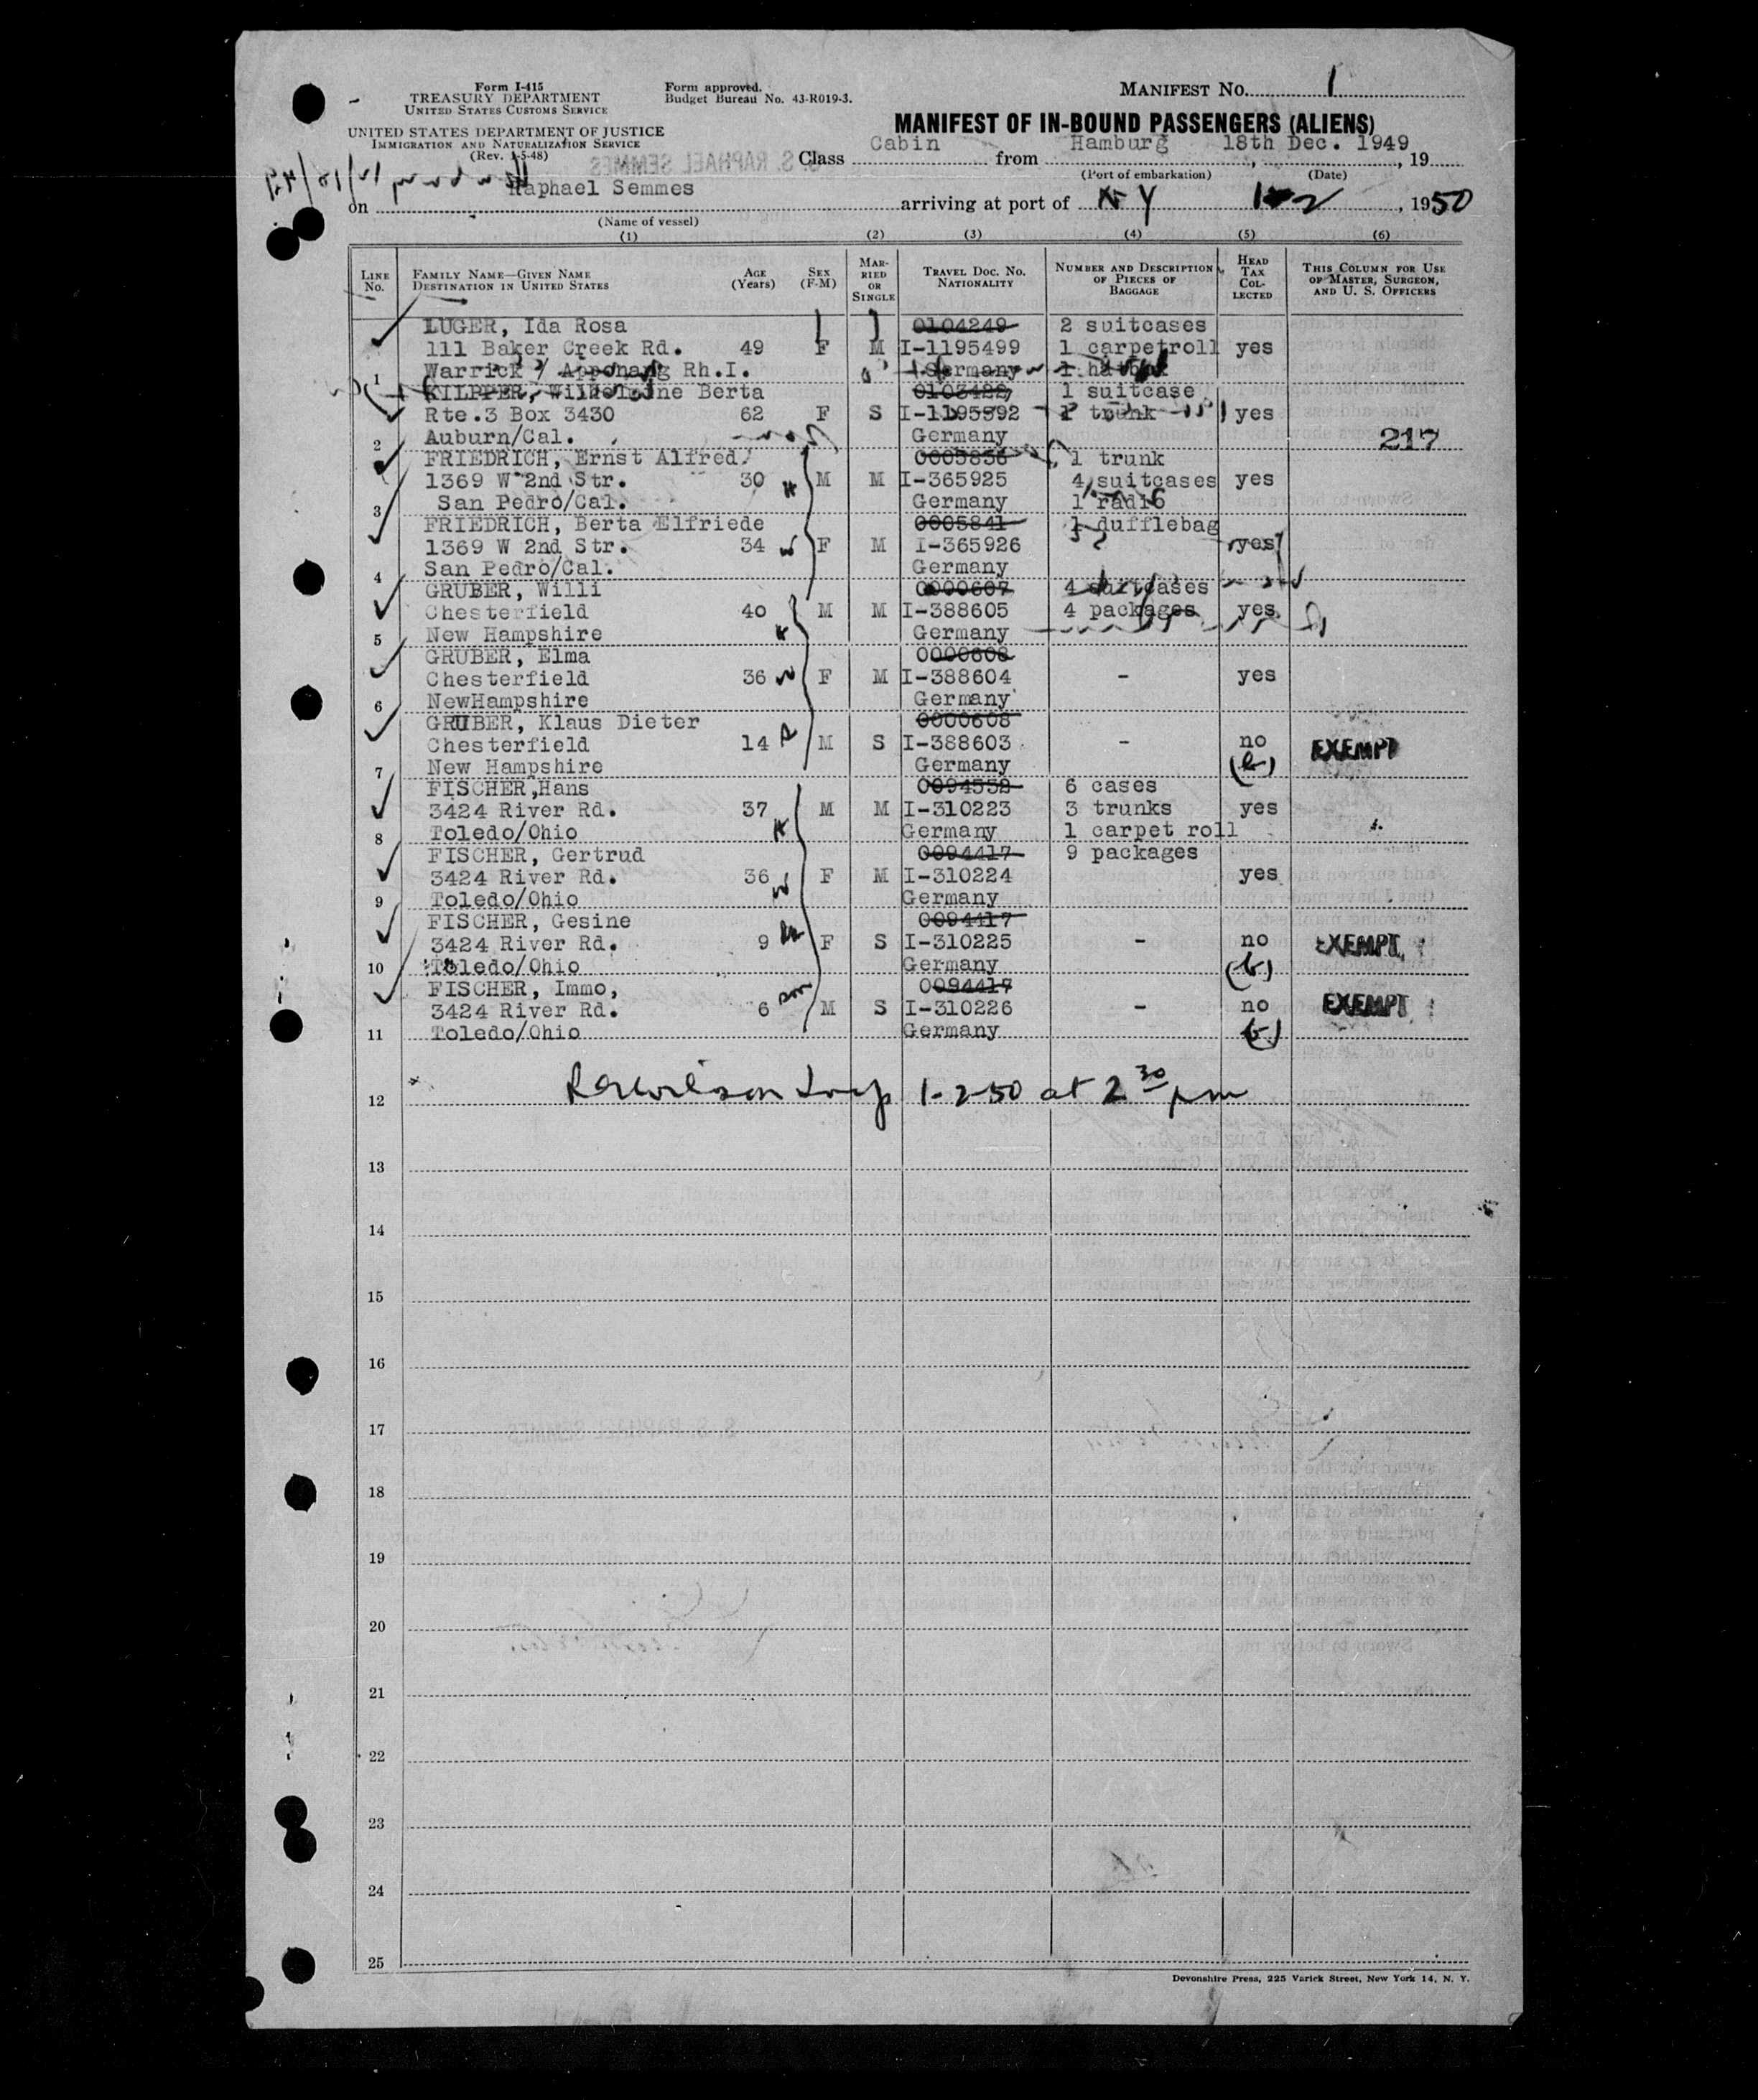 Form I-415
TREASURY DEPARTMENT
UNITED STATES CUSTOMS SERVICE
UNITED STATES DEPARTMENT OF JUSTICE
IMMIGRATION AND NATURALIZATION SERVICE
(Rev. 1-5-48)
Form approved.
Budget Bureau No. 43-R019-3.
MANIFEST NO. 1
MANIFEST OF IN-BOUND PASSENGERS (ALIENS)
Class Cabin from Hamburg 18th Dec. 1949, 19
(Port of embarkation) (Date)
S. S. RAPHAEL SEMMES
on Raphael Semmes arriving at port of N Y 1-2, 1950
(Name of vessel)
(1) (2) (3) (4) (5) (6)
LINE NO.
FAMILY NAME—GIVEN NAME
DESTINATION IN UNITED STATES
AGE (Years)
SEX (F-M)
MARRIED OR SINGLE
TRAVEL DOC. NO. NATIONALITY
NUMBER AND DESCRIPTION OF PIECES OF BAGGAGE
HEAD TAX COLLECTED
THIS COLUMN FOR USE OF MASTER, SURGEON, AND U. S. OFFICERS
LUGER, Ida Rosa 0104249 2 suitcases
111 Baker Creek Rd. 49 F M I-1195499 1 carpetroll yes
1 Warrick / Apponang Rh.I. Germany 1
KILPPER, Wilhelmine Berta 0103422 1 suitcase
Rte.3 Box 3430 62 F S I-1195592 trunk yes
2 Auburn/Cal. Germany 217
FRIEDRICH, Ernst Alfred 0005836 1 trunk
1369 W 2nd Str. 30 H M M I-365925 4 suitcases yes
3 San Pedro/Cal. Germany 1 radio
FRIEDRICH, Berta Elfriede 0005841 1 dufflebag
1369 W 2nd Str. 34 W F M I-365926 yes
4 San Pedro/Cal. Germany
GRUBER, Willi 0000607 4 suitcases
Chesterfield 40 M M I-388605 4 packages yes
5 New Hampshire H Germany
GRUBER, Elma 0000608
Chesterfield 36 W F M I-388604 - yes
6 NewHampshire Germany
GRUBER, Klaus Dieter 0000608
Chesterfield 14 M S I-388603 - no EXEMPT
7 New Hampshire Germany
FISCHER,Hans 0094552 6 cases
3424 River Rd. 37 M M I-310223 3 trunks yes
8 Toledo/Ohio H Germany 1 carpet roll
FISCHER, Gertrud 0094417 9 packages
3424 River Rd. 36 F M I-310224 yes
9 Toledo/Ohio W Germany
FISCHER, Gesine 0094417
3424 River Rd. 9 F S I-310225 - no EXEMPT
10 Toledo/Ohio Germany (b)
FISCHER, Immo, 0094417
3424 River Rd. 6 son M S I-310226 - no EXEMPT
11 Toledo/Ohio Germany (b)
12 1-2-50 at 2 30 pm
13
14
15
16
17
18
19
20
21
22
23
24
25
Devonshire Press, 225 Varick Street, New York 14, N. Y.